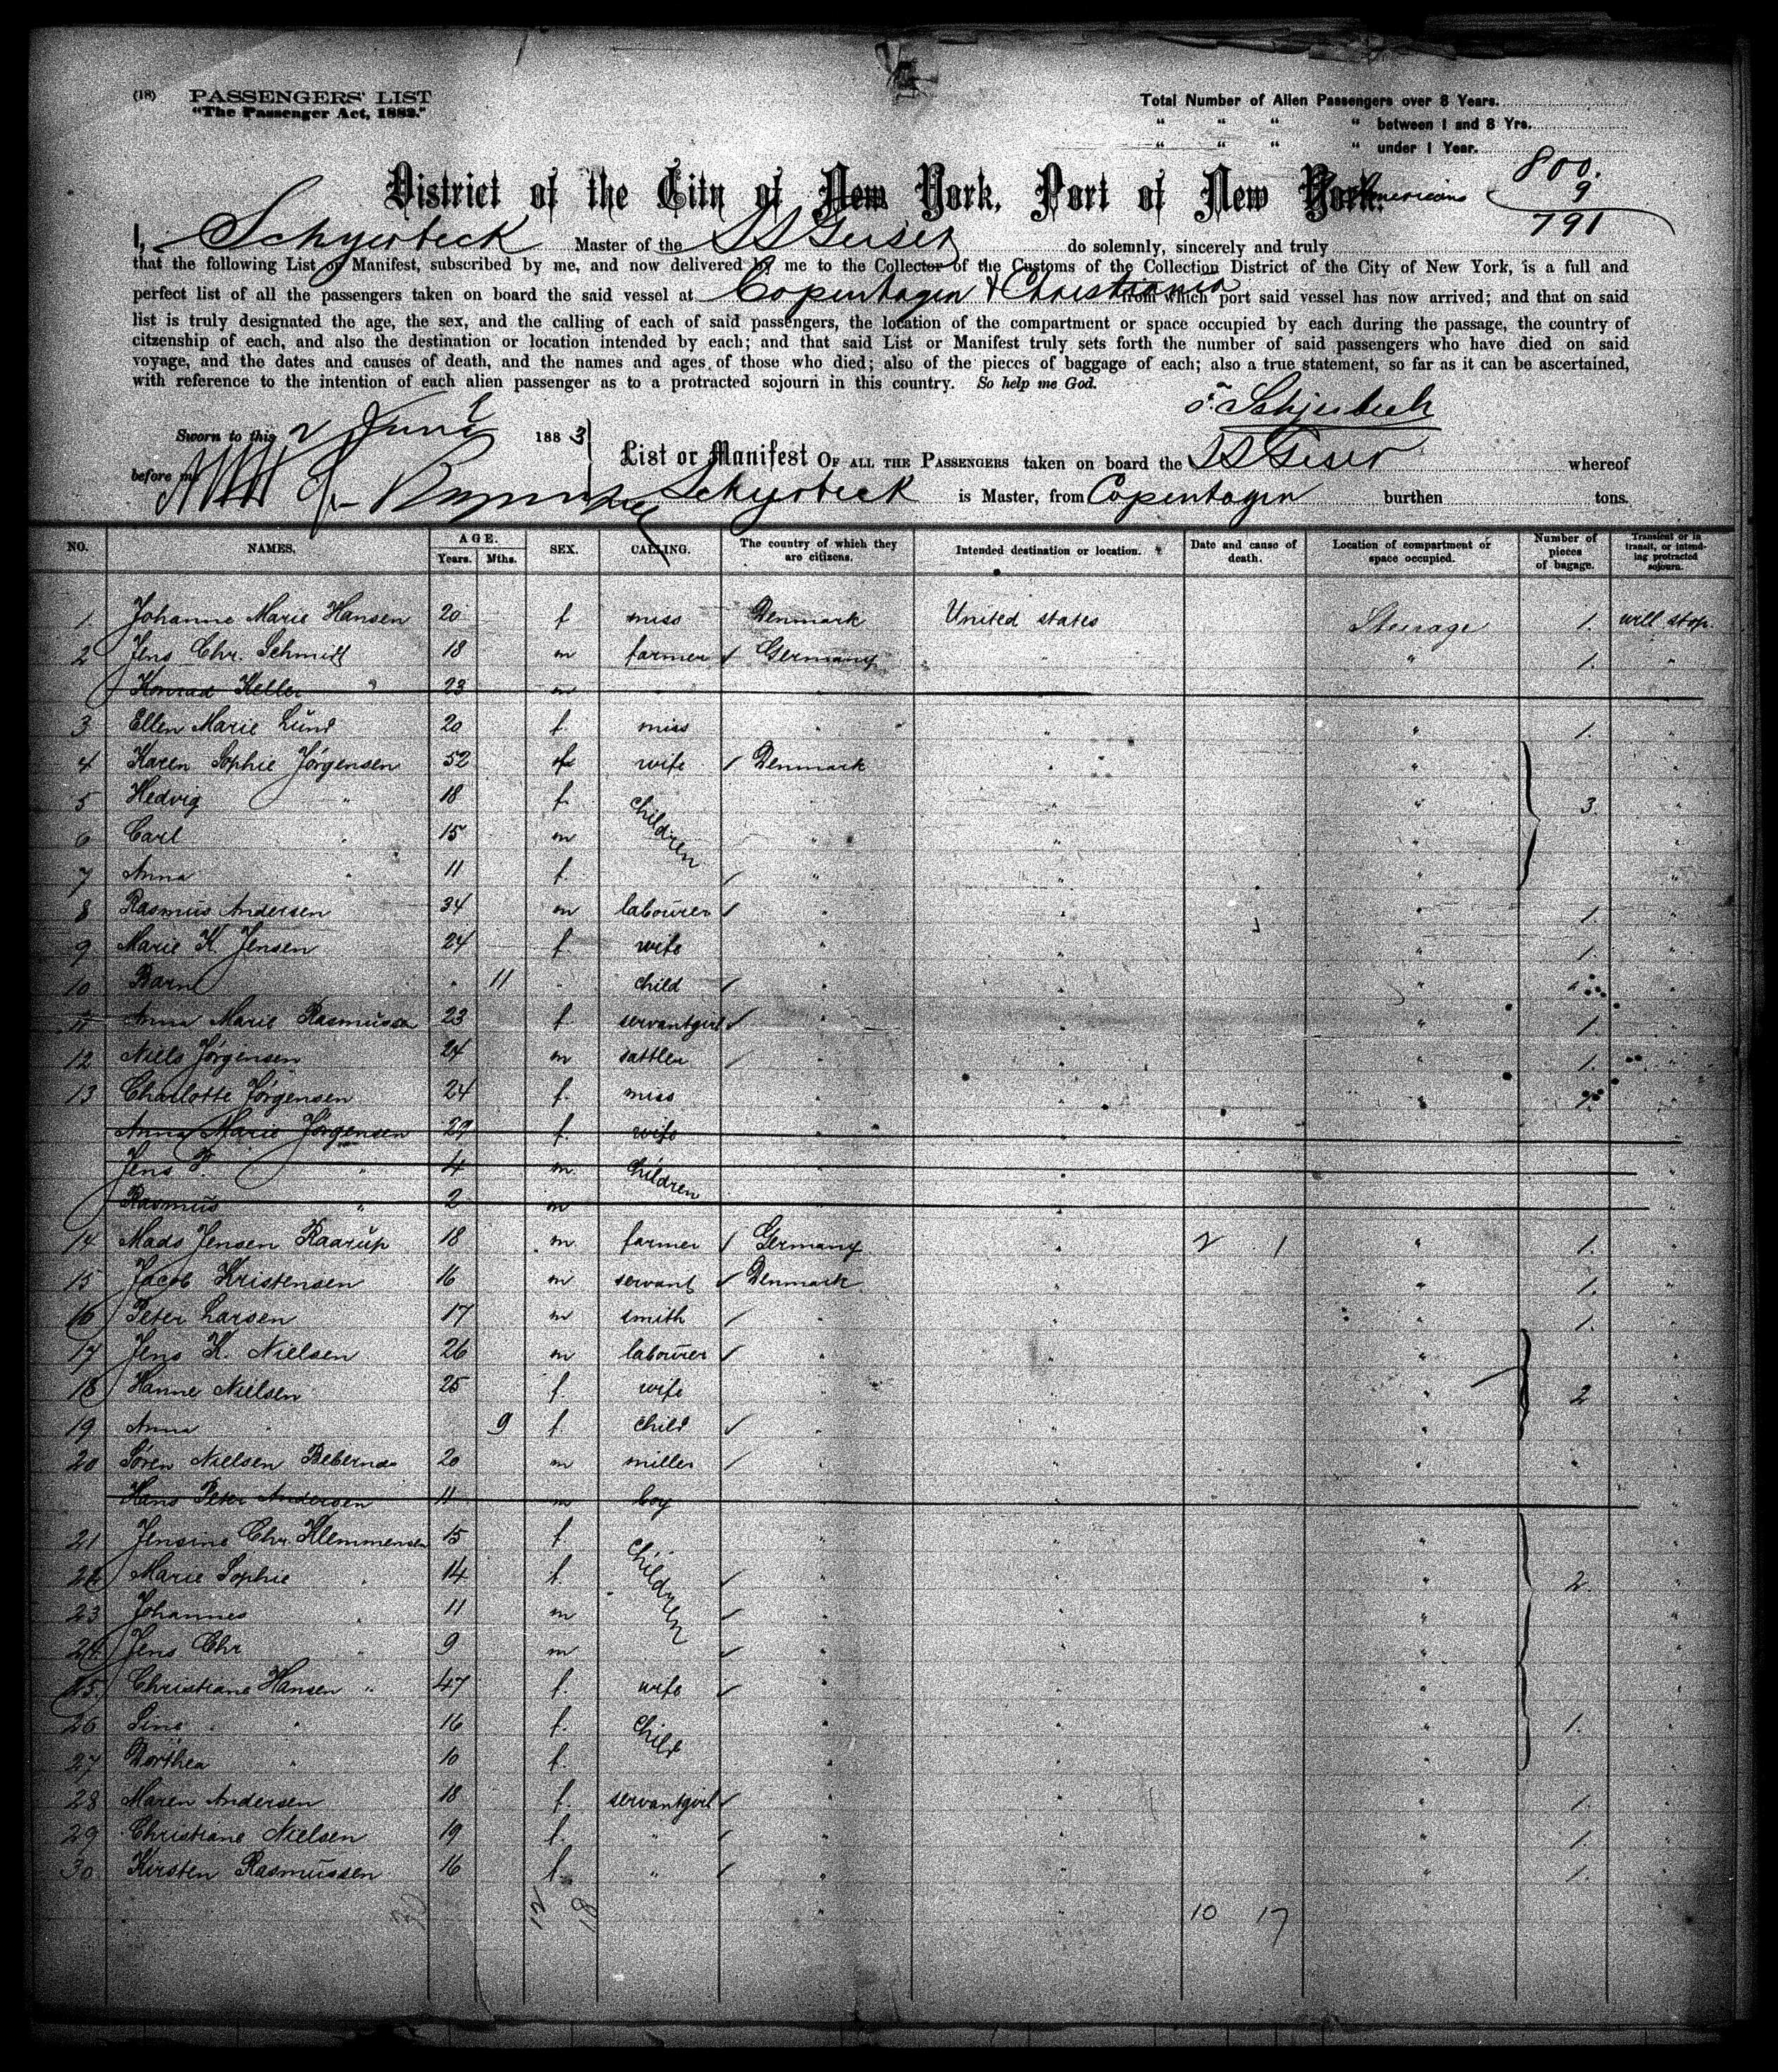 (18) PASSENGERS' LIST
"The Passenger Act, 1882."
Total Number of Alien Passengers over 8 Years.
" " " " between 1 and 8 Yrs.
" " " " under 1 Year.
800.
9
791
District of the City of New York, Port of New York.
I, Schyerbeck Master of the SS Geiser do solemnly, sincerely and truly
that the following List or Manifest, subscribed by me, and now delivered by me to the Collector of the Customs of the Collection District of the City of New York, is a full and
perfect list of all the passengers taken on board the said vessel at Copenhagen & Christiania from which port said vessel has now arrived; and that on said
list is truly designated the age, the sex, and the calling of each of said passengers, the location of the compartment or space occupied by each during the passage, the country of
citzenship of each, and also the destination or location intended by each; and that said List or Manifest truly sets forth the number of said passengers who have died on said
voyage, and the dates and causes of death, and the names and ages of those who died; also of the pieces of baggage of each; also a true statement, so far as it can be ascertained,
with reference to the intention of each alien passenger as to a protracted sojourn in this country. So help me God.
Sworn to this 2 June 1883
before me
List or Manifest OF ALL THE PASSENGERS taken on board the SS Geiser whereof
Schyerbeck is Master, from Copenhagen burthen tons.
NO. NAMES. AGE. Years. Mths. SEX. CALLING. The country of which they are citizens. Intended destination or location. Date and cause of death. Location of compartment or space occupied. Number of pieces of bagage. Transient or in transit, or intending protracted sojourn.
1 Johanne Marie Hansen 20 f miss Denmark United states Steerage 1. will stop.
2 Jens Chr. Schmidt 18 m farmer Germany " " 1. "
Konrad Keller " 23 m
3 Ellen Marie Lund 20 f. miss " " " 1. "
4 Karen Sophie Jørgensen 52 f wife Denmark " " "
5 Hedvig " 18 f. children " " 3. "
6 Carl " 15 m " " " "
7 Anna " 11 f. " " " "
8 Rasmus Andersen 34 m labourer " " " 1. "
9 Marie K. Jensen 24 f. wife " " " 1. "
10 Barn " 11 " child " " " "
11 Anna Marie Rasmussen 23 f. servantgirl " " " 1. "
12 Niels Jørgensen 24 m sattler " " " 1. "
13 Charlotte Jørgensen 24 f. miss " " " "
Anna Marie Jørgensen 29 f. wife " "
Jens P. " 4 m children " "
Rasmus " 2 m " "
14 Mads Jensen Raarup 18 m farmer Germany " 2 1 " 1. "
15 Jacob Kristensen 16 m servant Denmark " " 1. "
16 Peter Larsen 17 m smith " " " 1. "
17 Jens K. Nielsen 26 m labourer " " " "
18 Hanne Nielsen 25 f. wife " " 2 "
19 Anna " 9 f. child " " " "
20 Søren Nielsen 20 m miller " " " " "
Hans Peter Andersen 11 m boy " "
21 Jensine Chr. Klemmensen 15 f. children " " " "
22 Marie Sophie " 14 f. " " " 2. "
23 Johannes " 11 m " " " "
24 Jens Chr " 9 m " " " "
25. Christiane Hansen " 47 f. wife " " " "
26 Sine " 16 f. child " " " 1. "
27 Dorthea " 10 f. " " " "
28 Maren Andersen 18 f. servantgirl " " " 1. "
29 Christiane Nielsen 19 f. " " " " 1. "
30 Kirsten Rasmussen 16 f. " " " " 1. "
12 18 " " 10 17 "